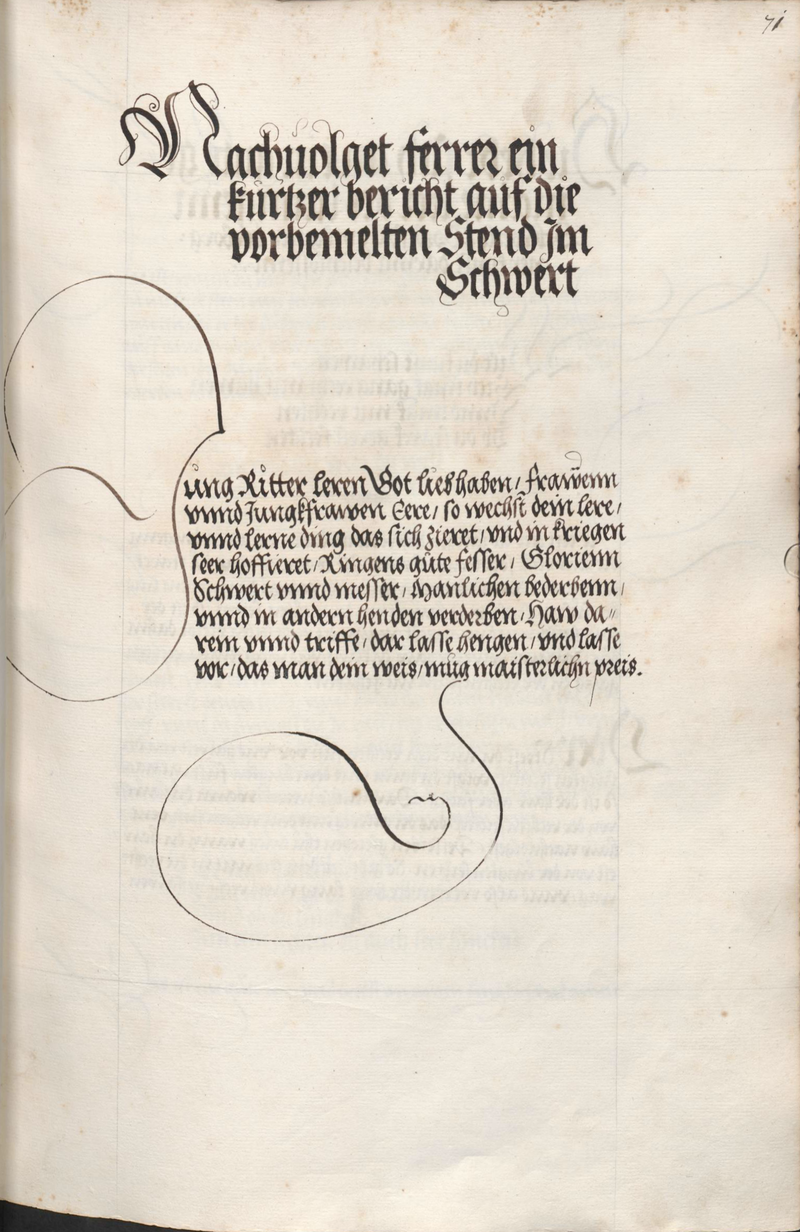 71
Nachuolget ferrer ein
kurtzer bericht auf die
vorbemelten Stend Jm
Schwert
Jung Ritter leren Got lieb haben / frawenn
vnnd Jungkfrawen Eere / so wechst dein lere /
vnnd lerne ding das sich zieret / vnd in kriegen
seer hoffieret / Ringens güte fesser / Glorienn
Schwert vnnd messer / Manlichen bederbenn /
vnnd in andern henden verderben / Haw da=
rein vnnd triffe / dar lasse hengen / vnd lasse
vor / das man dein weis / mug maisterlichn preis.